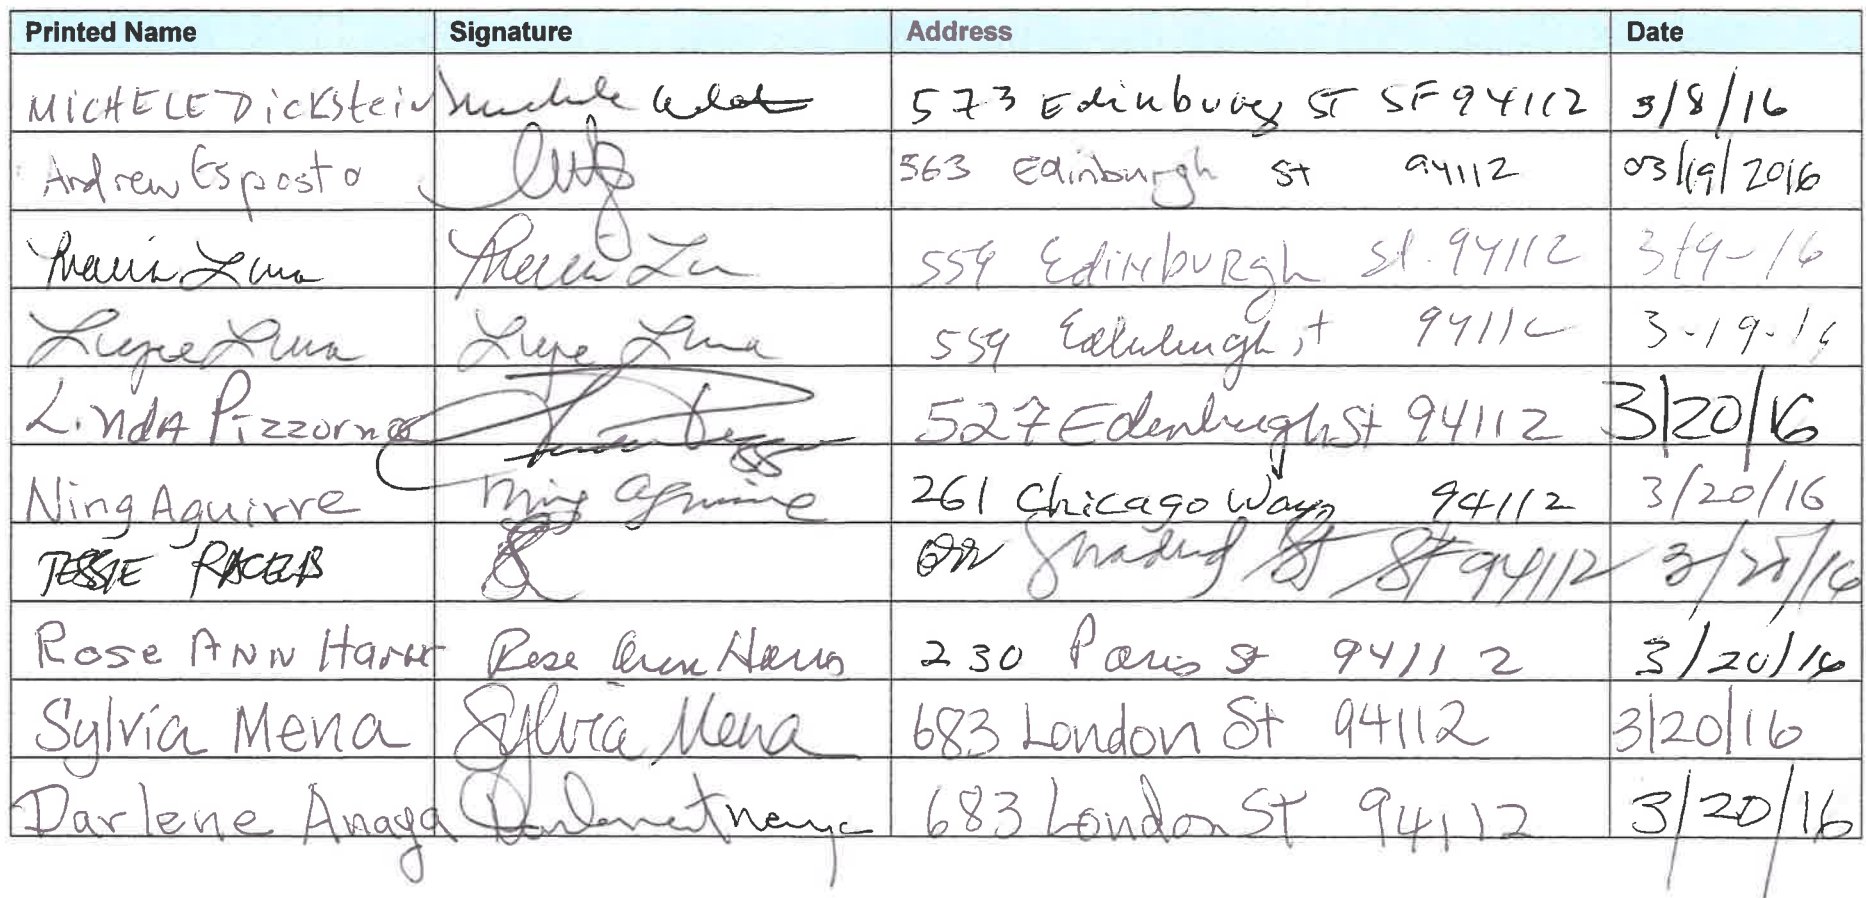 Printed Name Signature Address Date
MICHELE Dickstein 573 Edinburg ST SF 94112 3/8/16
Andrew Esposto 563 Edinburgh St 94112 03/19/2016
Maria Luna Maria Lu 559 Edinburgh St. 94112 3-19-16
Lupe Luna Lupe Luna 559 Edinburgh St 94112 3-19-16
Linda Pizzorno 527 Edenburgh St 94112 3/20/16
Ning Aguirre Ning Aguirre 261 Chicago Way 94112 3/20/16
St SF 94112
Rose ANN Harris Rose Ann Harris 230 Paris St 94112 3/20/16
Sylvia Mena Sylvia Mena 683 London St 94112 3/20/16
Darlene Anaya Darlene Anaya 683 London St 94112 3/20/16